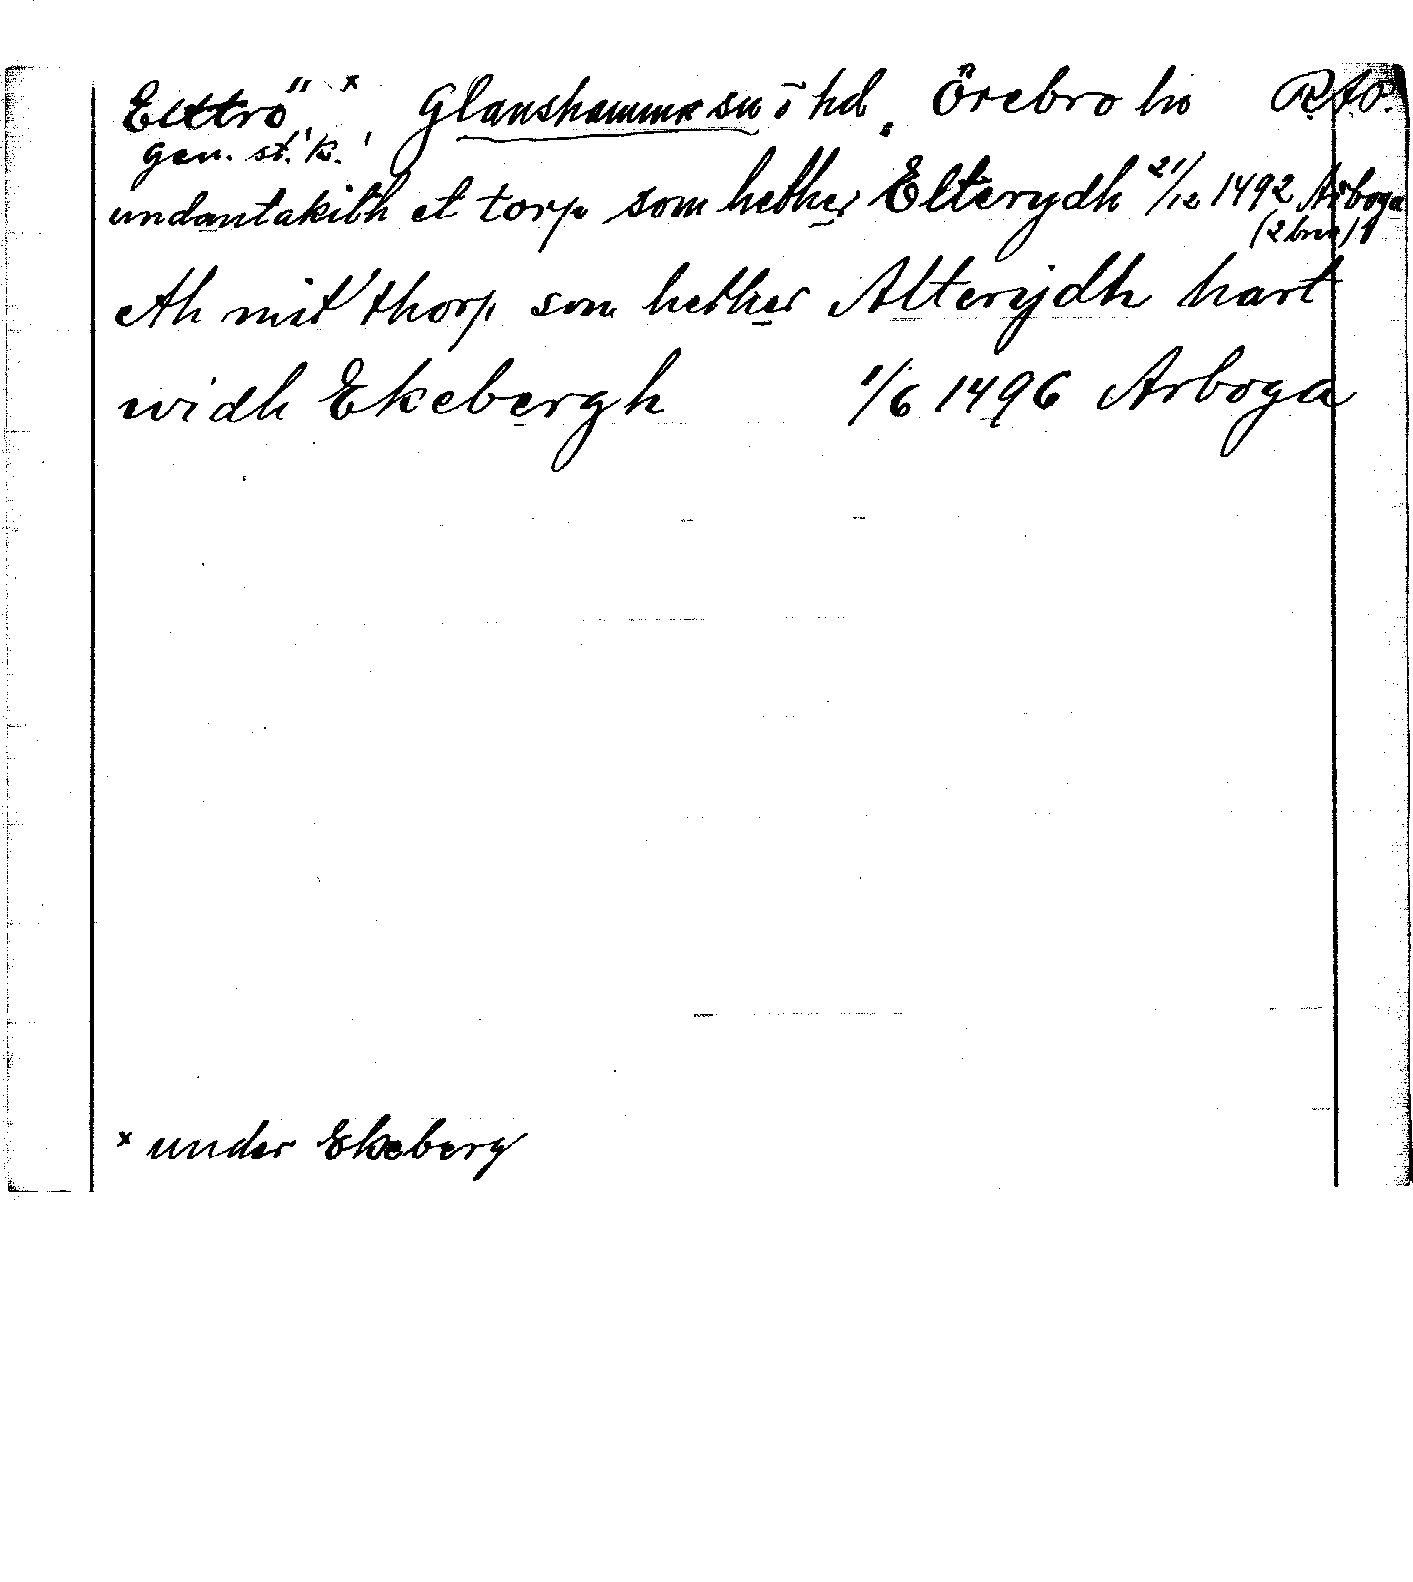 Elttrö x Glanshammar sn o hd, Örebro län RAO.
gen. st. 'k.'
undantakith et torp som hether Elterydh 21/12 1492 Arboga
(2 brev)
eth mit thorp som hether Alterijdh hart
widh Ekebergh 1/6 1496 Arboga
x under Ekeberg